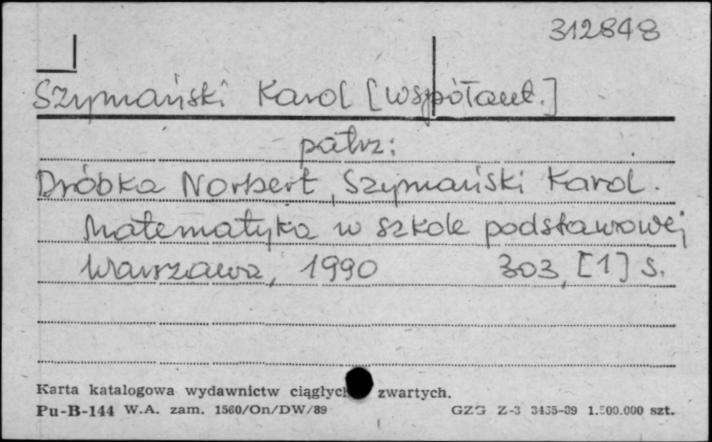 312848
Szymański Karol [współaut.]
patrz:
Dróbka Norbert, Szymański Karol.
Matematyka w szkole podstawowej
Warszawa, 1990 303, [1] s.
Karta katalogowa wydawnictw ciągłych zwartych.
Pu-B-144 W.A. zam. 1560/On/DW/89 GZG Z-3 3455-89 1.500.000 szt.